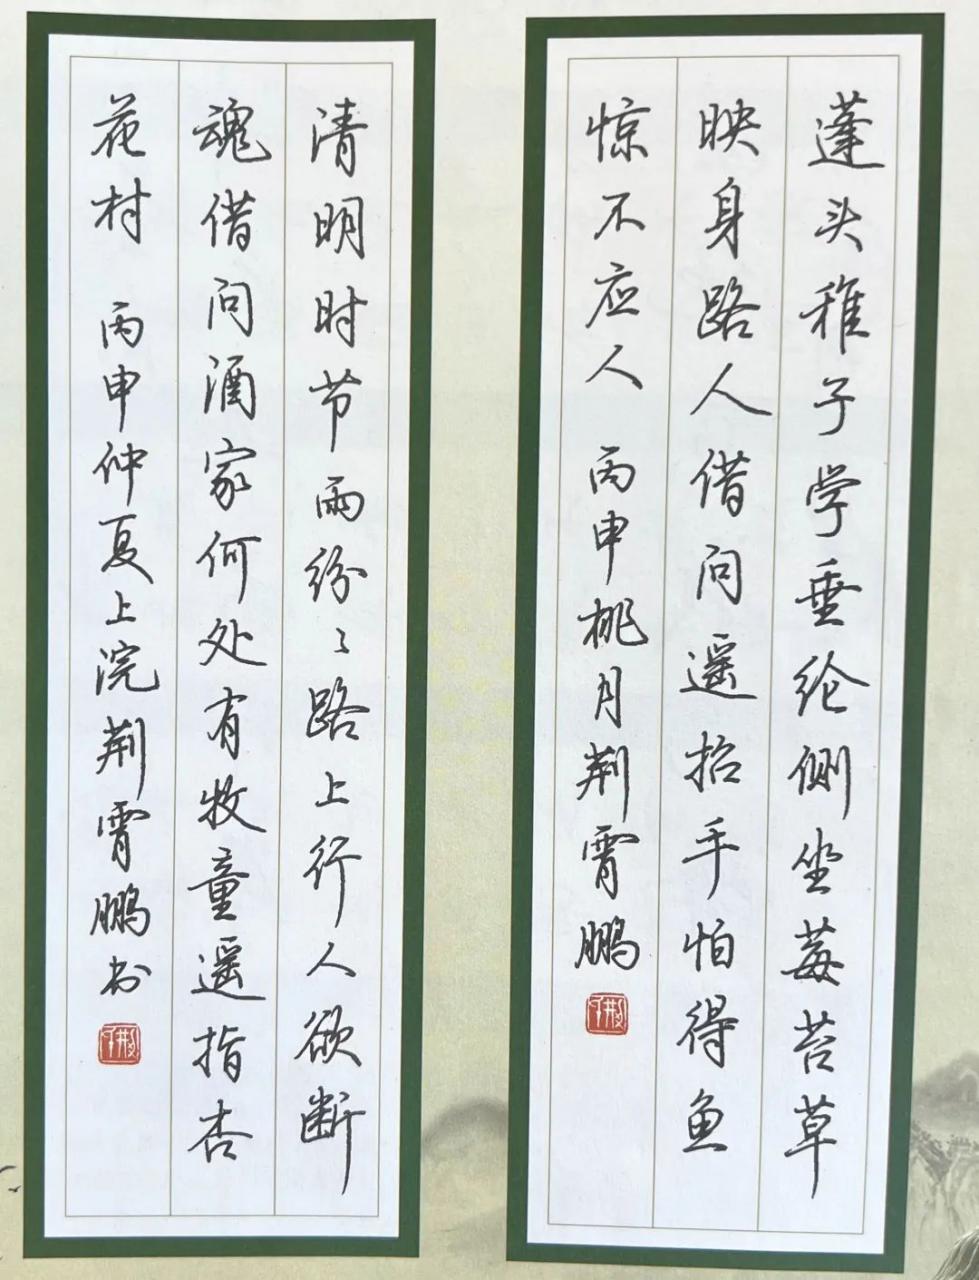 蓬头稚子学垂纶侧坐莓苔草
映身路人借问遥招手怕得鱼
惊不应人 丙申桃月荆霄鹏
清明时节雨纷〻路上行人欲断
魂借问酒家何处有牧童遥指杏
花村 丙申仲夏上浣荆霄鹏书